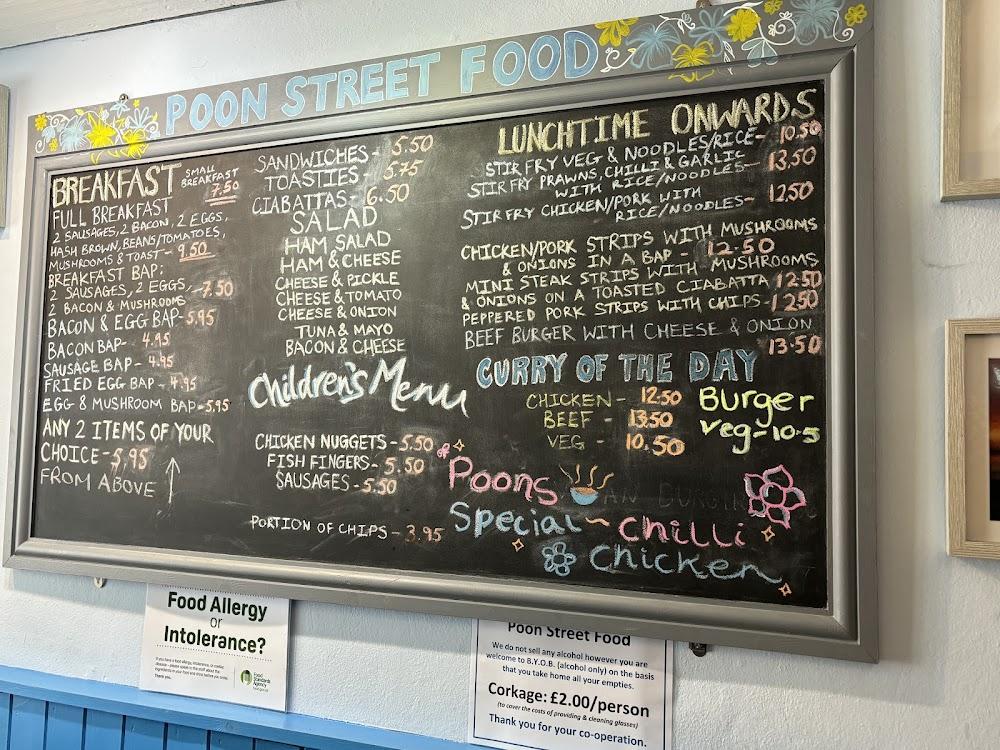 POON STREET FOOD
BREAKFAST
SMALL
BREAKFAST
7.50
FULL BREAKFAST
2 SAUSAGES, 2 BACON, 2 EGGS,
HASH BROWN, BEANS/TOMATOES,
MUSHROOMS & TOAST - 9.50
BREAKFAST BAP:
2 SAUSAGES, 2 EGGS, - 7.50
2 BACON & MUSHROOMS
BACON & EGG BAP - 5.95
BACON BAP - 4.95
SAUSAGE BAP - 4.95
FRIED EGG BAP - 4.95
EGG & MUSHROOM BAP - 5.95
ANY 2 ITEMS OF YOUR
CHOICE - 5.95
FROM ABOVE
SANDWICHES - 5.50
TOASTIES - 5.75
CIABATTAS - 6.50
SALAD
HAM SALAD
HAM & CHEESE
CHEESE & PICKLE
CHEESE & TOMATO
CHEESE & ONION
TUNA & MAYO
BACON & CHEESE
Children's Menu
CHICKEN NUGGETS - 5.50
FISH FINGERS - 5.50
SAUSAGES - 5.50
PORTION OF CHIPS - 3.95
LUNCHTIME ONWARDS
STIR FRY VEG & NOODLES/RICE - 10.50
STIR FRY PRAWNS, CHILLI & GARLIC
WITH RICE/NOODLES - 13.50
STIR FRY CHICKEN/PORK WITH
RICE/NOODLES - 12.50
CHICKEN/PORK STRIPS WITH MUSHROOMS
& ONIONS IN A BAP - 12.50
MINI STEAK STRIPS WITH MUSHROOMS
& ONIONS ON A TOASTED CIABATTA 12.50
PEPPERED PORK STRIPS WITH CHIPS - 12.50
BEEF BURGER WITH CHEESE & ONION
13.50
CURRY OF THE DAY
CHICKEN - 12.50
BEEF - 13.50
VEG - 10.50
Burger
Veg - 10.5
Poons
Special ~ Chilli
Chicken
Food Allergy
or
Intolerance?
If you have a food allergy, intolerance, or coeliac
disease – please speak to the staff about the
ingredients in your food and drink before you order.
Thank you.
Food
Standards
Agency
food.gov.uk
Poon Street Food
We do not sell any alcohol however you are
welcome to B.Y.O.B. (alcohol only) on the basis
that you take home all your empties.
Corkage: £2.00/person
(to cover the costs of providing & cleaning glasses)
Thank you for your co-operation.